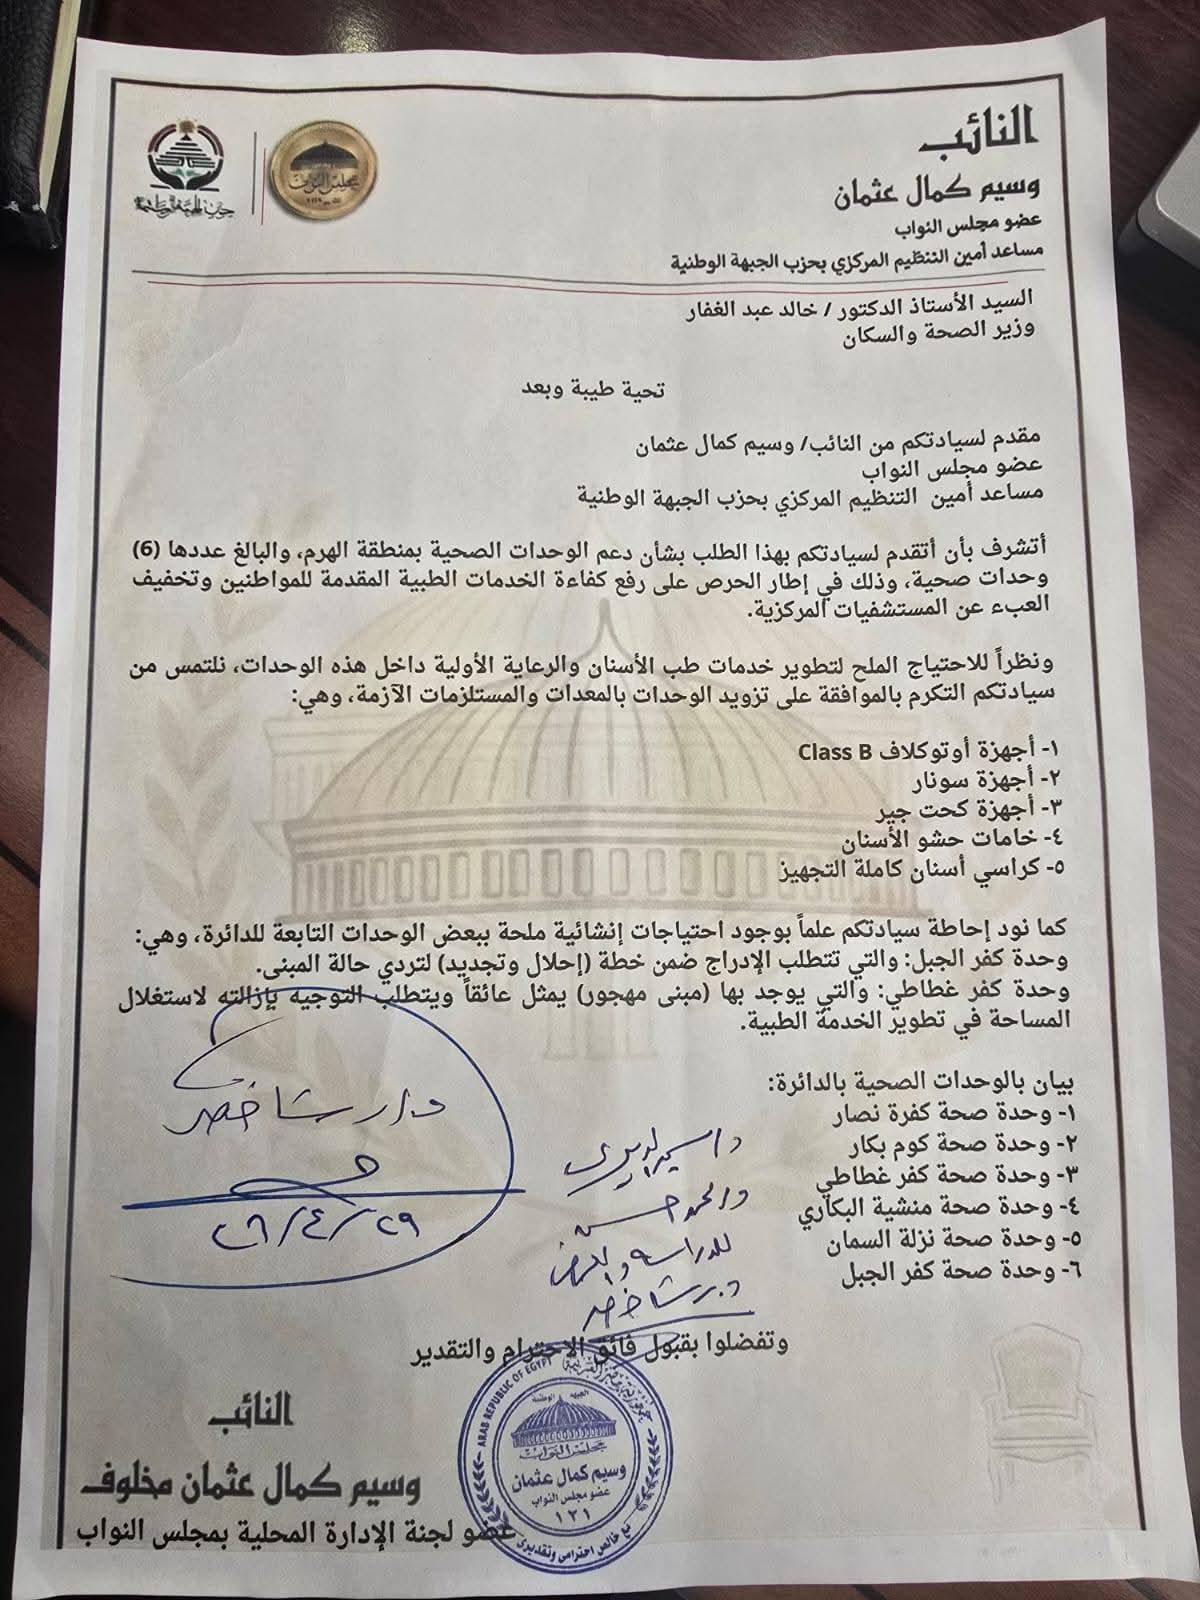 النائب
وسيم كمال عثمان
عضو مجلس النواب
مساعد أمين التنظيم المركزي بحزب الجبهة الوطنية
مجلس النواب
حزب الجبهة الوطنية
السيد الأستاذ الدكتور / خالد عبد الغفار
وزير الصحة والسكان
تحية طيبة وبعد
مقدم لسيادتكم من النائب/ وسيم كمال عثمان
عضو مجلس النواب
مساعد أمين التنظيم المركزي بحزب الجبهة الوطنية
أتشرف بأن أتقدم لسيادتكم بهذا الطلب بشأن دعم الوحدات الصحية بمنطقة الهرم، والبالغ عددها (6)
وحدات صحية، وذلك في إطار الحرص على رفع كفاءة الخدمات الطبية المقدمة للمواطنين وتخفيف
العبء عن المستشفيات المركزية.
ونظراً للاحتياج الملح لتطوير خدمات طب الأسنان والرعاية الأولية داخل هذه الوحدات، نلتمس من
سيادتكم التكرم بالموافقة على تزويد الوحدات بالمعدات والمستلزمات الآزمة، وهي:
١- أجهزة أوتوكلاف Class B
٢- أجهزة سونار
٣- أجهزة كحت جير
٤- خامات حشو الأسنان
٥- كراسي أسنان كاملة التجهيز
كما نود إحاطة سيادتكم علماً بوجود احتياجات إنشائية ملحة ببعض الوحدات التابعة للدائرة، وهي:
وحدة كفر الجبل: والتي تتطلب الإدراج ضمن خطة (إحلال وتجديد) لتردي حالة المبنى.
وحدة كفر غطاطي: والتي يوجد بها (مبنى مهجور) يمثل عائقاً ويتطلب التوجيه بإزالته لاستغلال
المساحة في تطوير الخدمة الطبية.
بيان بالوحدات الصحية بالدائرة:
١- وحدة صحة كفرة نصار
٢- وحدة صحة كوم بكار
٣- وحدة صحة كفر غطاطي
٤- وحدة صحة منشية البكاري
٥- وحدة صحة نزلة السمان
٦- وحدة صحة كفر الجبل
د./ رشا خضر
٢٩/٤/٢٦
للدراسة والعرض
د. رشا خضر
وتفضلوا بقبول فائق الاحترام والتقدير
النائب
وسيم كمال عثمان مخلوف
عضو لجنة الإدارة المحلية بمجلس النواب
ARAB REPUBLIC OF EGYPT جمهورية مصر العربية
الجبهة الوطنية
مجلس النواب
وسيم كمال عثمان
عضو مجلس النواب
١٢١
مع خالص احترامي وتقديري